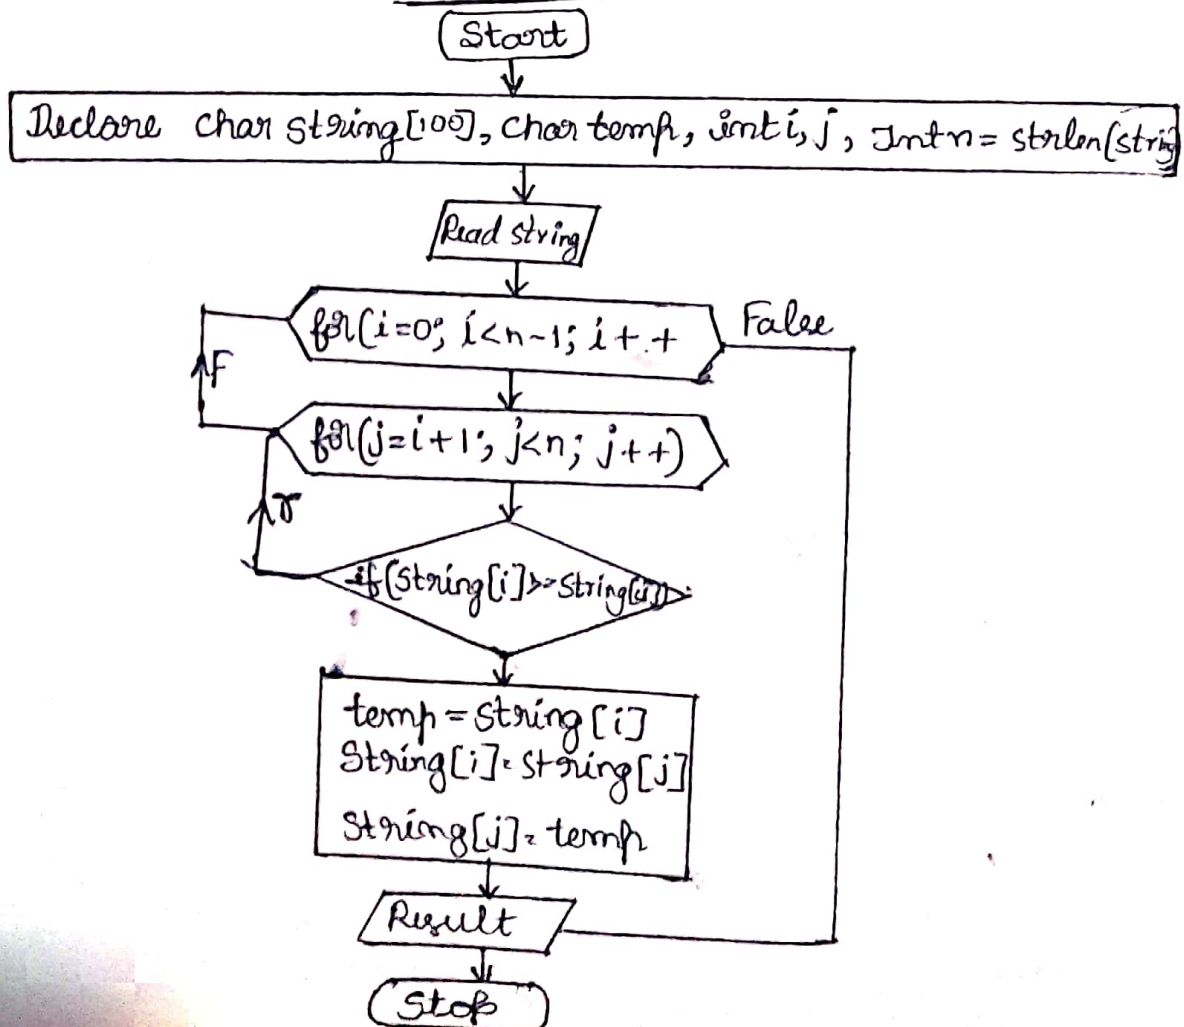 Start
Declare char string[100], Char temp, int i, j, Int n = strlen(string
Read string
for(i=0; i<n-1; i++
False
F
for(j=i+1; j<n; j++)
if(String[i]>=String[j])
temp = String[i]
String[i]=string[j]
String[j]=temp
Result
Stop